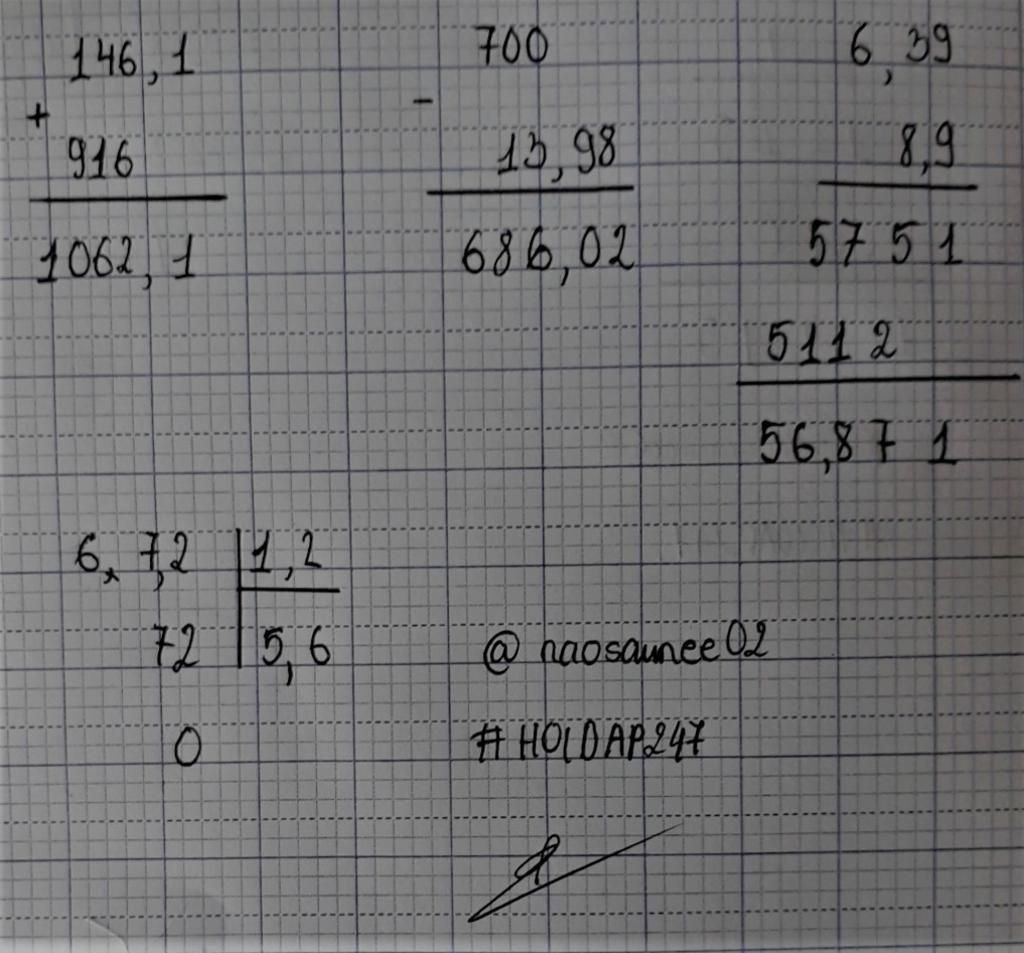 146,1
+
916
1062,1
700
-
13,98
686,02
6,39
8,9
5751
5112
56,871
6,7,2 1,2
72 5,6
0
@ naosaunee02
#HOIDAP247